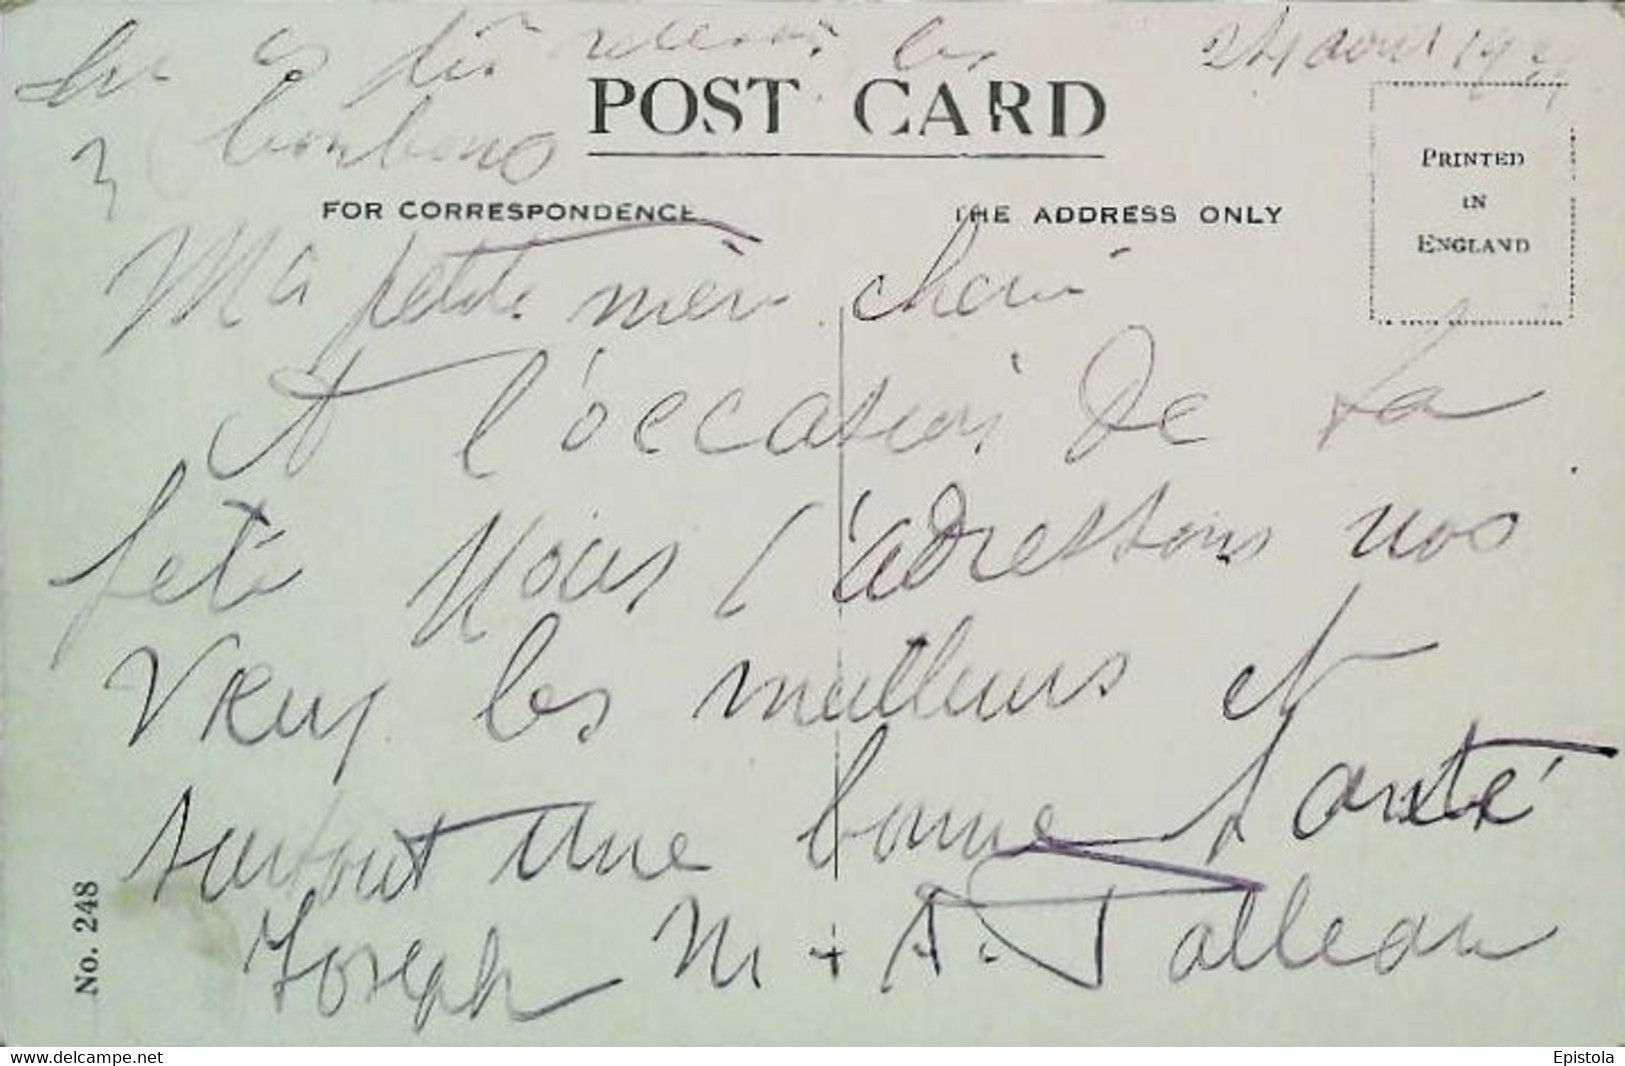 tu as dû recevoir les 24 août 19
bonbons
POST CARD
PRINTED
IN
ENGLAND
FOR CORRESPONDENCE THE ADDRESS ONLY
Ma petite mère chérie
A l'occasion de ta
fête Nous t'adressons nos
vœux les meilleurs et
surtout une bonne santé
Joseph M + A. Talleau
No. 248
www.delcampe.net Epistola